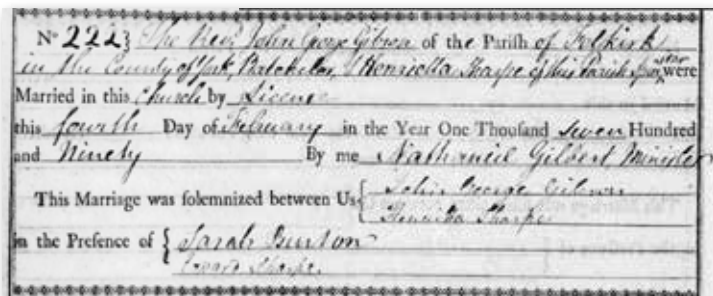 No 222 } The Revd John George Gibson of the Parish of Felkirk
in the County of York, Batchelor, & Henrietta Sharpe of this Parish Spinster were
Married in this Church by Licence
this fourth Day of February in the Year One Thousand seven Hundred
and Ninety By me Nathaniel Gilbert Minister
This Marriage was solemnized between Us { John George Gibson
Henrietta Sharpe
in the Presence of { Sarah Bunton
Sharpe